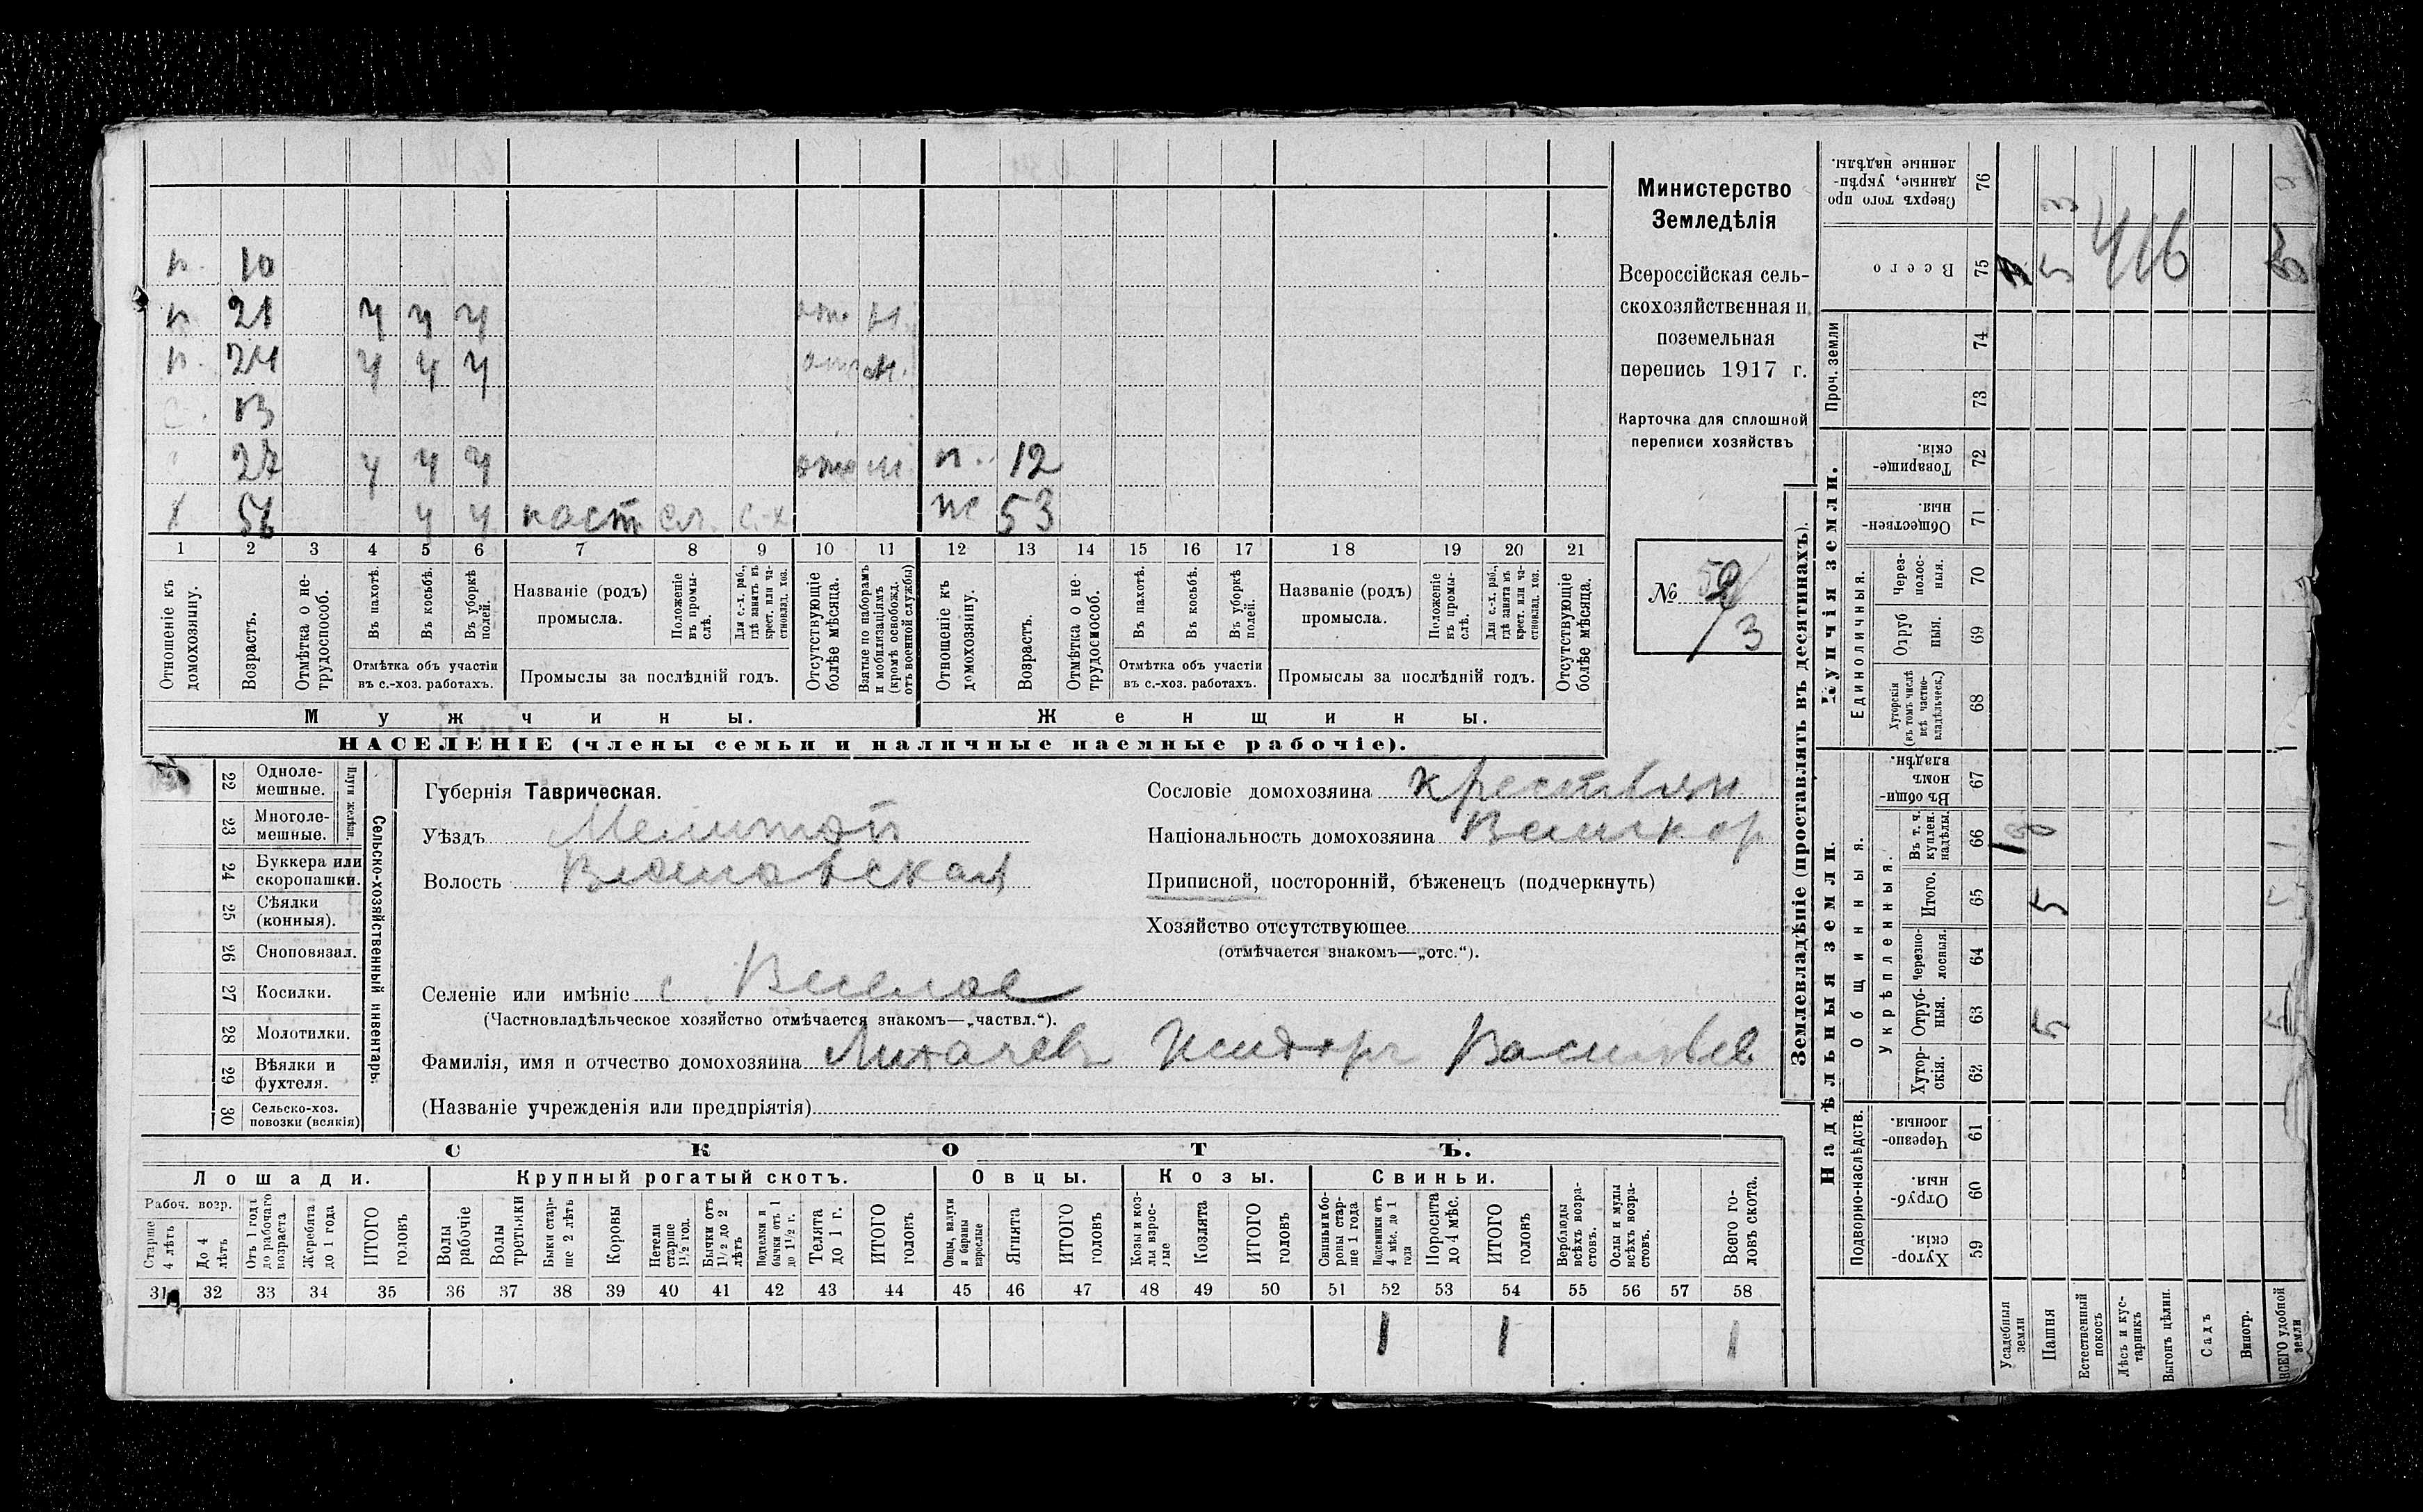 п. 10
п 21 ч ч ч отс м.
п. 24 ч ч ч отс м.
13
27 ч ч ч отс м. п. 12
х 56 ч ч паст сл. с.-х ж 53
1 2 3 4 5 6 7 8 9 10 11 12 13 14 15 16 17 18 19 20 21
Отношеніе къ домохозяину.
Возрастъ.
Отмѣтка о нетрудоспособ.
Въ пахотѣ.
Въ косьбѣ.
Въ уборкѣ полей.
Отмѣтка объ участіи въ с.-хоз. работахъ.
Названіе (родъ) промысла.
Положеніе въ промыслѣ.
Для с.-х. раб., гдѣ занятъ въ крест. или частновлад. хоз.
Промыслы за послѣдній годъ.
Отсутствующіе болѣе мѣсяца.
Взятые по наборамъ и мобилизаціямъ (кромѣ освобожд. отъ военной службы)
Отношеніе къ домохозяину.
Возрастъ.
Отмѣтка о нетрудоспособ.
Въ пахотѣ.
Въ косьбѣ.
Въ уборкѣ полей.
Отмѣтка объ участіи въ с.-хоз. работахъ.
Названіе (родъ) промысла.
Положеніе въ промыслѣ.
Для с.-х. раб., гдѣ занята въ крест. или частновлад. хоз.
Промыслы за послѣдній годъ.
Отсутствующіе болѣе мѣсяца.
Мужчины.
Женщины.
НАСЕЛЕНІЕ (члены семьи и наличные наемные рабочіе).
Министерство
Земледѣлія
Всероссійская сель-
скохозяйственная и
поземельная
перепись 1917 г.
Карточка для сплошной
переписи хозяйствъ
№
3
22 Одноле-мешные.
23 Многоле-мешные.
Плуги желѣзн.
24 Буккера или скоропашки.
25 Сѣялки (конныя).
26 Сноповязал.
27 Косилки.
28 Молотилки.
29 Вѣялки и фухтеля.
30 Сельско-хоз. повозки (всякія)
Сельско-хозяйственный инвентарь.
Губернія Таврическая.
Уѣздъ Мелитоп
Волость
Селеніе или имѣніе с. Веселое
(Частновладѣльческое хозяйство отмѣчается знакомъ—„частвл.“).
Фамилія, имя и отчество домохозяина Лихачев Исидоръ Васильев
(Названіе учрежденія или предпріятія)
Сословіе домохозяина крестьян
Національность домохозяина Великор
Приписной, посторонній, бѣженецъ (подчеркнуть)
Хозяйство отсутствующее
(отмѣчается знакомъ—„отс.“).
СКОТЪ.
Лошади.
Крупный рогатый скотъ.
Овцы.
Козы.
Свиньи.
Рабоч. возр.
Старше 4 лѣтъ
До 4 лѣтъ
Отъ 1 года до рабочаго возраста
Жеребята до 1 года
ИТОГО головъ
Волы рабочіе
Волы третьяки
Быки старше 2 лѣтъ
Коровы
Нетели старше 1½ год.
Бычки отъ 1½ до 2 лѣтъ
Подтелки и бычки отъ 1 до 1½ г.
Телята до 1 г.
ИТОГО головъ
Овцы, валухи и бараны взрослые
Ягнята
ИТОГО головъ
Козы и козлы взрослые
Козлята
ИТОГО головъ
Свиньи и боровы старше 1 года
Подсвинки отъ 4 мѣс. до 1 года
Поросята до 4 мѣс.
ИТОГО головъ
Верблюды всѣхъ возрастовъ.
Ослы и мулы всѣхъ возрастовъ.
Всего головъ скота.
31 32 33 34 35 36 37 38 39 40 41 42 43 44 45 46 47 48 49 50 51 52 53 54 55 56 57 58
1 1 1
Землевладѣніе (проставлять въ десятинахъ).
Сверхъ того проданные, укрѣпленные надѣлы. 76 3
Всего 75 5 416
Проч. земли
74
73
Купчія земли.
Товарищескія. 72
Общественныя. 71
Единоличныя.
Черезполосныя. 70
Отрубныя. 69
Хуторскія (въ томъ числѣ всѣ частновладѣльческ.) 68
Надѣльныя земли.
Общинныя.
Въ общинномъ владѣн. 67
Укрѣпленныя.
Въ т. ч. куплен. надѣлы. 66
Итого. 65 5
Черезполосныя. 64
Отрубныя. 63 5 5
Хуторскія. 62
Подворно-наслѣдств.
Черезполосныя. 61
Отрубныя. 60
Хуторскія. 59
Усадебныя земли
Пашня
Естественный покосъ
Лѣсъ и кустарникъ
Выгонъ цѣлин.
Садъ
Виногр.
ВСЕГО удобной земли